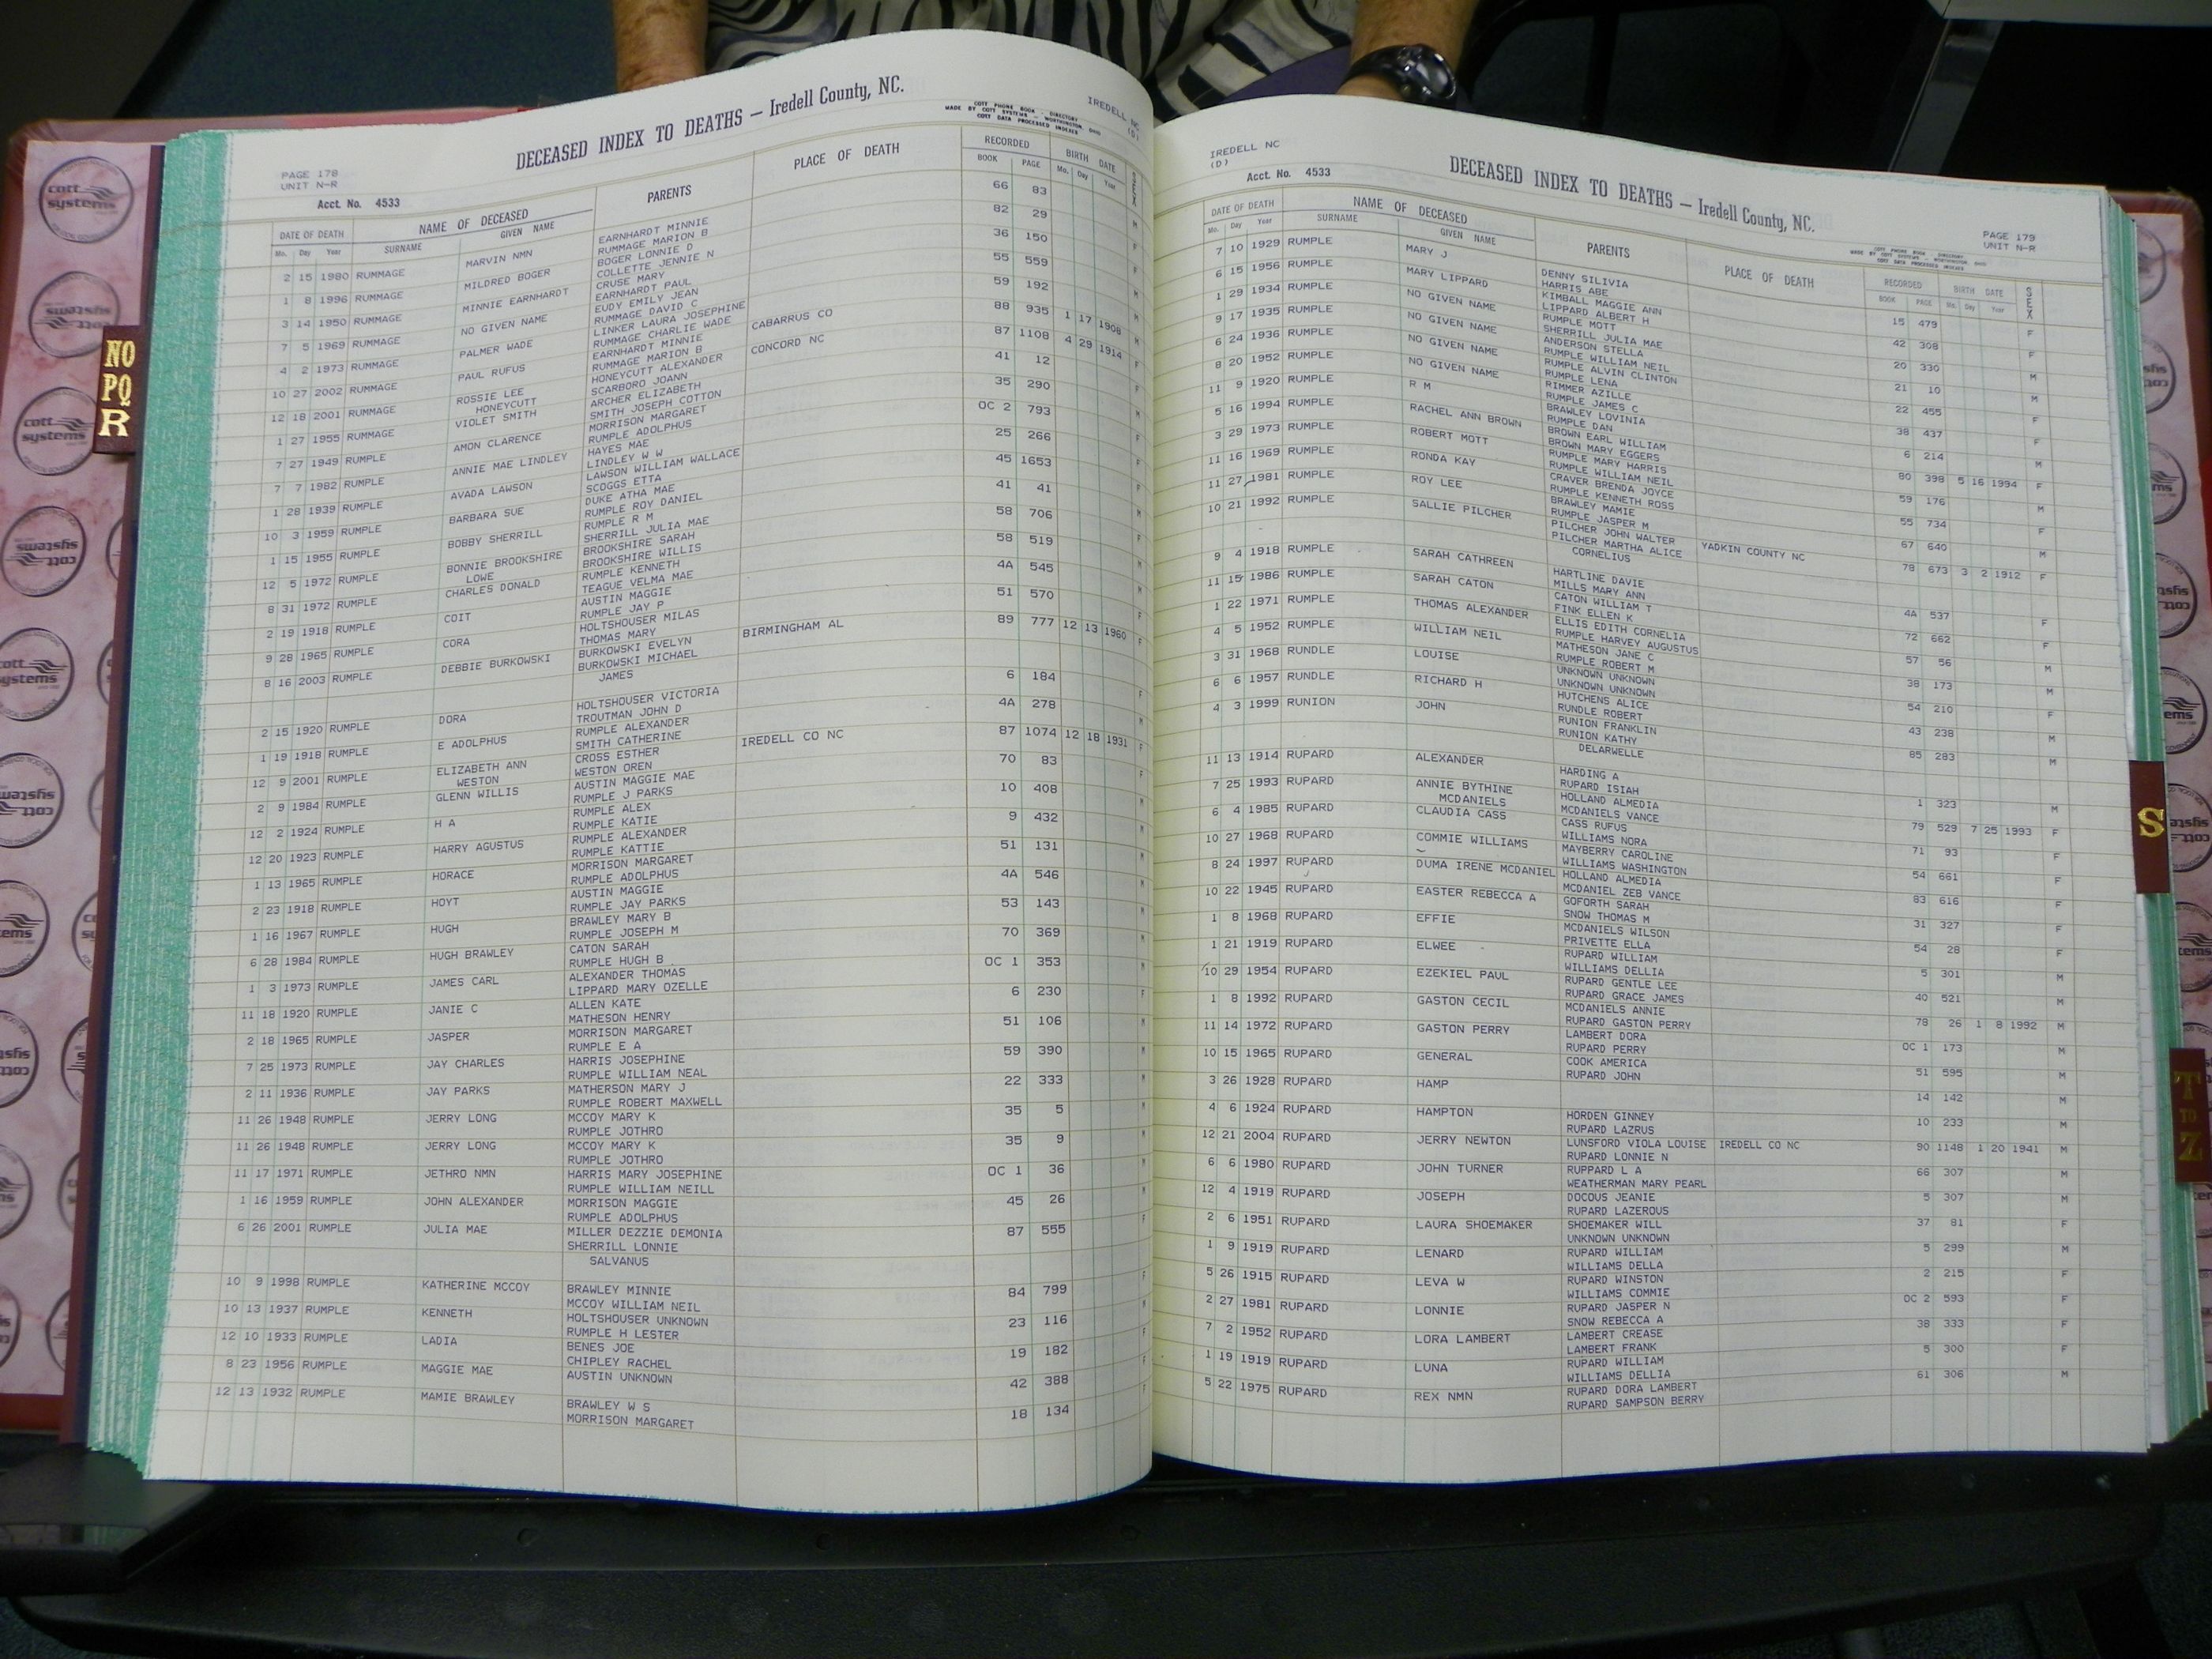 DECEASED INDEX TO DEATHS — Iredell County, NC.
COTT PHONE BOOK - DIRECTORY
MADE BY COTT SYSTEMS - WORTHINGTON, OHIO
COTT DATA PROCESSED INDEXES
IREDELL NC
(D)
PAGE 178
UNIT N-R
Acct. No. 4533
DATE OF DEATH NAME OF DECEASED PARENTS PLACE OF DEATH RECORDED BIRTH DATE SEX
Mo. Day Year SURNAME GIVEN NAME BOOK PAGE Mo. Day Year
2 15 1980 RUMMAGE MARVIN NMN EARNHARDT MINNIE 66 83 M
RUMMAGE MARION B
1 8 1996 RUMMAGE MILDRED BOGER BOGER LONNIE D 82 29 F
COLLETTE JENNIE N
3 14 1950 RUMMAGE MINNIE EARNHARDT CRUSE MARY 36 150 F
EARNHARDT PAUL
7 5 1969 RUMMAGE NO GIVEN NAME EUDY EMILY JEAN 55 559
RUMMAGE DAVID C
4 2 1973 RUMMAGE PALMER WADE LINKER LAURA JOSEPHINE 59 192 M
RUMMAGE CHARLIE WADE
10 27 2002 RUMMAGE PAUL RUFUS EARNHARDT MINNIE CABARRUS CO 88 935 1 17 1908 M
RUMMAGE MARION B
12 18 2001 RUMMAGE ROSSIE LEE HONEYCUTT ALEXANDER CONCORD NC 87 1108 4 29 1914 F
HONEYCUTT SCARBORO JOANN
1 27 1955 RUMMAGE VIOLET SMITH ARCHER ELIZABETH 41 12 F
SMITH JOSEPH COTTON
7 27 1949 RUMPLE AMON CLARENCE MORRISON MARGARET 35 290 M
RUMPLE ADOLPHUS
7 7 1982 RUMPLE ANNIE MAE LINDLEY HAYES MAE OC 2 793 F
LINDLEY W W
1 28 1939 RUMPLE AVADA LAWSON LAWSON WILLIAM WALLACE 25 266 F
SCOGGS ETTA
10 3 1959 RUMPLE BARBARA SUE DUKE ATHA MAE 45 1653 F
RUMPLE ROY DANIEL
1 15 1955 RUMPLE BOBBY SHERRILL RUMPLE R M 41 41 M
SHERRILL JULIA MAE
12 5 1972 RUMPLE BONNIE BROOKSHIRE BROOKSHIRE SARAH 58 706 F
LOWE BROOKSHIRE WILLIS
8 31 1972 RUMPLE CHARLES DONALD RUMPLE KENNETH 58 519 M
TEAGUE VELMA MAE
2 19 1918 RUMPLE COIT AUSTIN MAGGIE 4A 545 M
RUMPLE JAY P
9 28 1965 RUMPLE CORA HOLTSHOUSER MILAS 51 570 F
THOMAS MARY
8 16 2003 RUMPLE DEBBIE BURKOWSKI BURKOWSKI EVELYN BIRMINGHAM AL 89 777 12 13 1960 F
BURKOWSKI MICHAEL
JAMES
2 15 1920 RUMPLE DORA HOLTSHOUSER VICTORIA 6 184 F
TROUTMAN JOHN D
1 19 1918 RUMPLE E ADOLPHUS RUMPLE ALEXANDER 4A 278 M
SMITH CATHERINE
12 9 2001 RUMPLE ELIZABETH ANN CROSS ESTHER IREDELL CO NC 87 1074 12 18 1931 F
WESTON WESTON OREN
2 9 1984 RUMPLE GLENN WILLIS AUSTIN MAGGIE MAE 70 83 M
RUMPLE J PARKS
12 2 1924 RUMPLE H A RUMPLE ALEX 10 408 M
RUMPLE KATIE
12 20 1923 RUMPLE HARRY AGUSTUS RUMPLE ALEXANDER 9 432 M
RUMPLE KATTIE
1 13 1965 RUMPLE HORACE MORRISON MARGARET 51 131 M
RUMPLE ADOLPHUS
2 23 1918 RUMPLE HOYT AUSTIN MAGGIE 4A 546 M
RUMPLE JAY PARKS
1 16 1967 RUMPLE HUGH BRAWLEY MARY B 53 143 M
RUMPLE JOSEPH M
6 28 1984 RUMPLE HUGH BRAWLEY CATON SARAH 70 369 M
RUMPLE HUGH B
1 3 1973 RUMPLE JAMES CARL ALEXANDER THOMAS OC 1 353 M
LIPPARD MARY OZELLE
11 18 1920 RUMPLE JANIE C ALLEN KATE 6 230 F
MATHESON HENRY
2 18 1965 RUMPLE JASPER MORRISON MARGARET 51 106 M
RUMPLE E A
7 25 1973 RUMPLE JAY CHARLES HARRIS JOSEPHINE 59 390 M
RUMPLE WILLIAM NEAL
2 11 1936 RUMPLE JAY PARKS MATHERSON MARY J 22 333 M
RUMPLE ROBERT MAXWELL
11 26 1948 RUMPLE JERRY LONG MCCOY MARY K 35 5 M
RUMPLE JOTHRO
11 26 1948 RUMPLE JERRY LONG MCCOY MARY K 35 9 M
RUMPLE JOTHRO
11 17 1971 RUMPLE JETHRO NMN HARRIS MARY JOSEPHINE OC 1 36 M
RUMPLE WILLIAM NEILL
1 16 1959 RUMPLE JOHN ALEXANDER MORRISON MAGGIE 45 26 M
RUMPLE ADOLPHUS
6 26 2001 RUMPLE JULIA MAE MILLER DEZZIE DEMONIA 87 555 F
SHERRILL LONNIE
SALVANUS
10 9 1998 RUMPLE KATHERINE MCCOY BRAWLEY MINNIE 84 799 F
MCCOY WILLIAM NEIL
10 13 1937 RUMPLE KENNETH HOLTSHOUSER UNKNOWN 23 116 M
RUMPLE H LESTER
12 10 1933 RUMPLE LADIA BENES JOE 19 182 F
CHIPLEY RACHEL
8 23 1956 RUMPLE MAGGIE MAE AUSTIN UNKNOWN 42 388 F
12 13 1932 RUMPLE MAMIE BRAWLEY BRAWLEY W S 18 134 F
MORRISON MARGARET
IREDELL NC
(D)
Acct. No. 4533
DECEASED INDEX TO DEATHS — Iredell County, NC.
PAGE 179
UNIT N-R
COTT PHONE BOOK - DIRECTORY
MADE BY COTT SYSTEMS - WORTHINGTON, OHIO
COTT DATA PROCESSED INDEXES
DATE OF DEATH NAME OF DECEASED PARENTS PLACE OF DEATH RECORDED BIRTH DATE SEX
Mo. Day Year SURNAME GIVEN NAME BOOK PAGE Mo. Day Year
7 10 1929 RUMPLE MARY J DENNY SILIVIA 15 479 F
HARRIS ABE
6 15 1956 RUMPLE MARY LIPPARD KIMBALL MAGGIE ANN 42 308 F
LIPPARD ALBERT H
1 29 1934 RUMPLE NO GIVEN NAME RUMPLE MOTT 20 330 M
SHERRILL JULIA MAE
9 17 1935 RUMPLE NO GIVEN NAME ANDERSON STELLA 21 10 M
RUMPLE WILLIAM NEIL
6 24 1936 RUMPLE NO GIVEN NAME RUMPLE ALVIN CLINTON 22 455 F
RUMPLE LENA
8 20 1952 RUMPLE NO GIVEN NAME RIMMER AZILLE 38 437 F
RUMPLE JAMES C
11 9 1920 RUMPLE R M BRAWLEY LOVINIA 6 214 M
RUMPLE DAN
5 16 1994 RUMPLE RACHEL ANN BROWN BROWN EARL WILLIAM 80 398 5 16 1994 F
BROWN MARY EGGERS
3 29 1973 RUMPLE ROBERT MOTT RUMPLE MARY HARRIS 59 176 M
RUMPLE WILLIAM NEIL
11 16 1969 RUMPLE RONDA KAY CRAVER BRENDA JOYCE 55 734 F
RUMPLE KENNETH ROSS
11 27 1981 RUMPLE ROY LEE BRAWLEY MAMIE YADKIN COUNTY NC 67 640 M
RUMPLE JASPER M
10 21 1992 RUMPLE SALLIE PILCHER PILCHER JOHN WALTER 78 673 3 2 1912 F
PILCHER MARTHA ALICE
CORNELIUS
9 4 1918 RUMPLE SARAH CATHREEN HARTLINE DAVIE 4A 537 F
MILLS MARY ANN
11 15 1986 RUMPLE SARAH CATON CATON WILLIAM T 72 662 F
FINK ELLEN K
1 22 1971 RUMPLE THOMAS ALEXANDER ELLIS EDITH CORNELIA 57 56 M
RUMPLE HARVEY AUGUSTUS
4 5 1952 RUMPLE WILLIAM NEIL MATHESON JANE C 38 173 M
RUMPLE ROBERT M
3 31 1968 RUNDLE LOUISE UNKNOWN UNKNOWN 54 210 F
UNKNOWN UNKNOWN
6 6 1957 RUNDLE RICHARD H HUTCHENS ALICE 43 238 M
RUNDLE ROBERT
4 3 1999 RUNION JOHN RUNION FRANKLIN 85 283 M
RUNION KATHY
DELARWELLE
11 13 1914 RUPARD ALEXANDER HARDING A 1 323 M
RUPARD ISIAH
7 25 1993 RUPARD ANNIE BYTHINE HOLLAND ALMEDIA 79 529 7 25 1993 F
MCDANIELS MCDANIELS VANCE
6 4 1985 RUPARD CLAUDIA CASS CASS RUFUS 71 93 F
WILLIAMS NORA
10 27 1968 RUPARD COMMIE WILLIAMS MAYBERRY CAROLINE 54 661 F
WILLIAMS WASHINGTON
8 24 1997 RUPARD DUMA IRENE MCDANIEL HOLLAND ALMEDIA 83 616 F
MCDANIEL ZEB VANCE
10 22 1945 RUPARD EASTER REBECCA A GOFORTH SARAH 31 327 F
SNOW THOMAS M
1 8 1968 RUPARD EFFIE MCDANIELS WILSON 54 28 F
PRIVETTE ELLA
1 21 1919 RUPARD ELWEE RUPARD WILLIAM 5 301 M
WILLIAMS DELLIA
10 29 1954 RUPARD EZEKIEL PAUL RUPARD GENTLE LEE 40 521 M
RUPARD GRACE JAMES
1 8 1992 RUPARD GASTON CECIL MCDANIELS ANNIE 78 26 1 8 1992 M
RUPARD GASTON PERRY
11 14 1972 RUPARD GASTON PERRY LAMBERT DORA OC 1 173 M
RUPARD PERRY
10 15 1965 RUPARD GENERAL COOK AMERICA 51 595 M
RUPARD JOHN
3 26 1928 RUPARD HAMP 14 142 M
4 6 1924 RUPARD HAMPTON HORDEN GINNEY 10 233 M
RUPARD LAZRUS
12 21 2004 RUPARD JERRY NEWTON LUNSFORD VIOLA LOUISE IREDELL CO NC 90 1148 1 20 1941 M
RUPARD LONNIE N
6 6 1980 RUPARD JOHN TURNER RUPPARD L A 66 307 M
WEATHERMAN MARY PEARL
12 4 1919 RUPARD JOSEPH DOCOUS JEANIE 5 307 M
RUPARD LAZEROUS
2 6 1951 RUPARD LAURA SHOEMAKER SHOEMAKER WILL 37 81 F
UNKNOWN UNKNOWN
1 9 1919 RUPARD LENARD RUPARD WILLIAM 5 299 M
WILLIAMS DELLA
5 26 1915 RUPARD LEVA W RUPARD WINSTON 2 215 F
WILLIAMS COMMIE
2 27 1981 RUPARD LONNIE RUPARD JASPER N OC 2 593 F
SNOW REBECCA A
7 2 1952 RUPARD LORA LAMBERT LAMBERT CREASE 38 333 F
LAMBERT FRANK
1 19 1919 RUPARD LUNA RUPARD WILLIAM 5 300 F
WILLIAMS DELLIA
5 22 1975 RUPARD REX NMN RUPARD DORA LAMBERT 61 306 M
RUPARD SAMPSON BERRY
NO
PQ
R
S
T
TO
Z
cott
systems